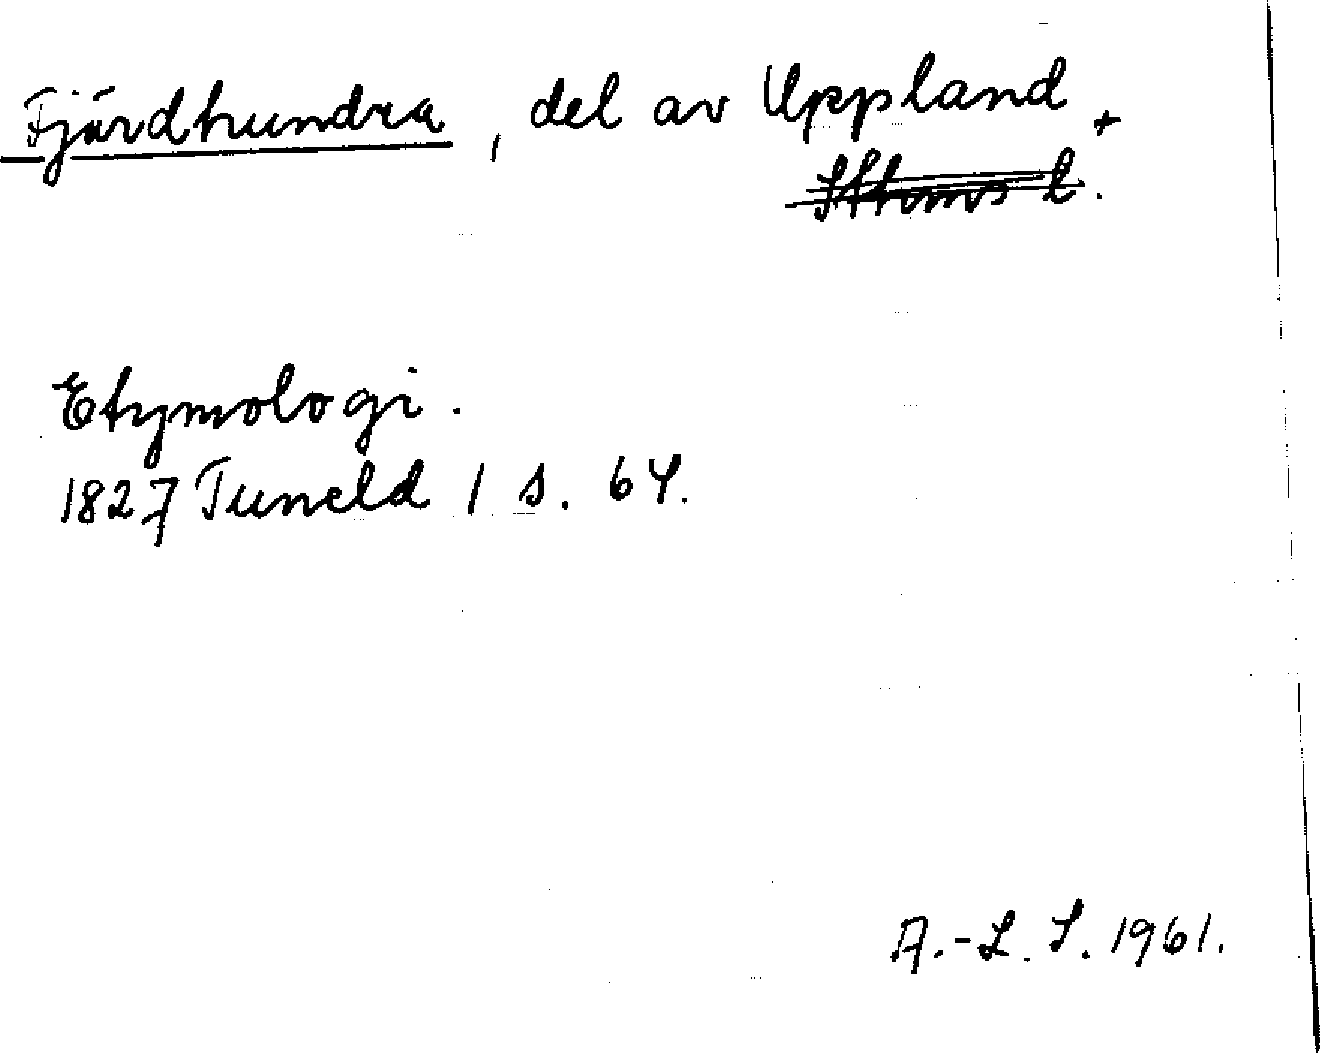 Fjärdhundra, del av Uppland,
Sthms l.
Etymologi.
1827 Tuneld 1 s. 64.
A.-L. S. 1961.